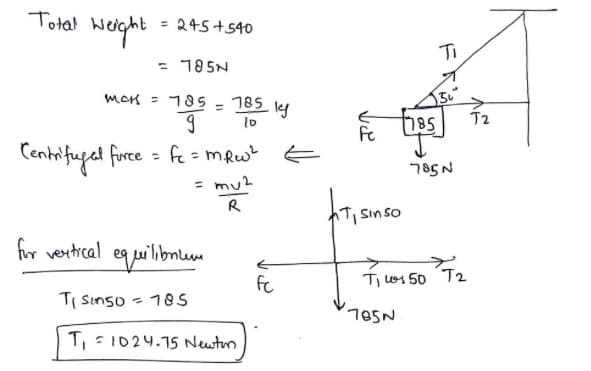 Total Weight = 245+540
= 785N
mass = 785/g = 785/10 kg
Centrifugal force = fc = mRω² ⇐
= mv²/R
for vertical equilibrium
T₁ sin50 = 785
T₁ = 1024.75 Newton
T₁
50°
T2
fc
785
785N
T₁ sin50
fc
T₁ cos50 T2
785N